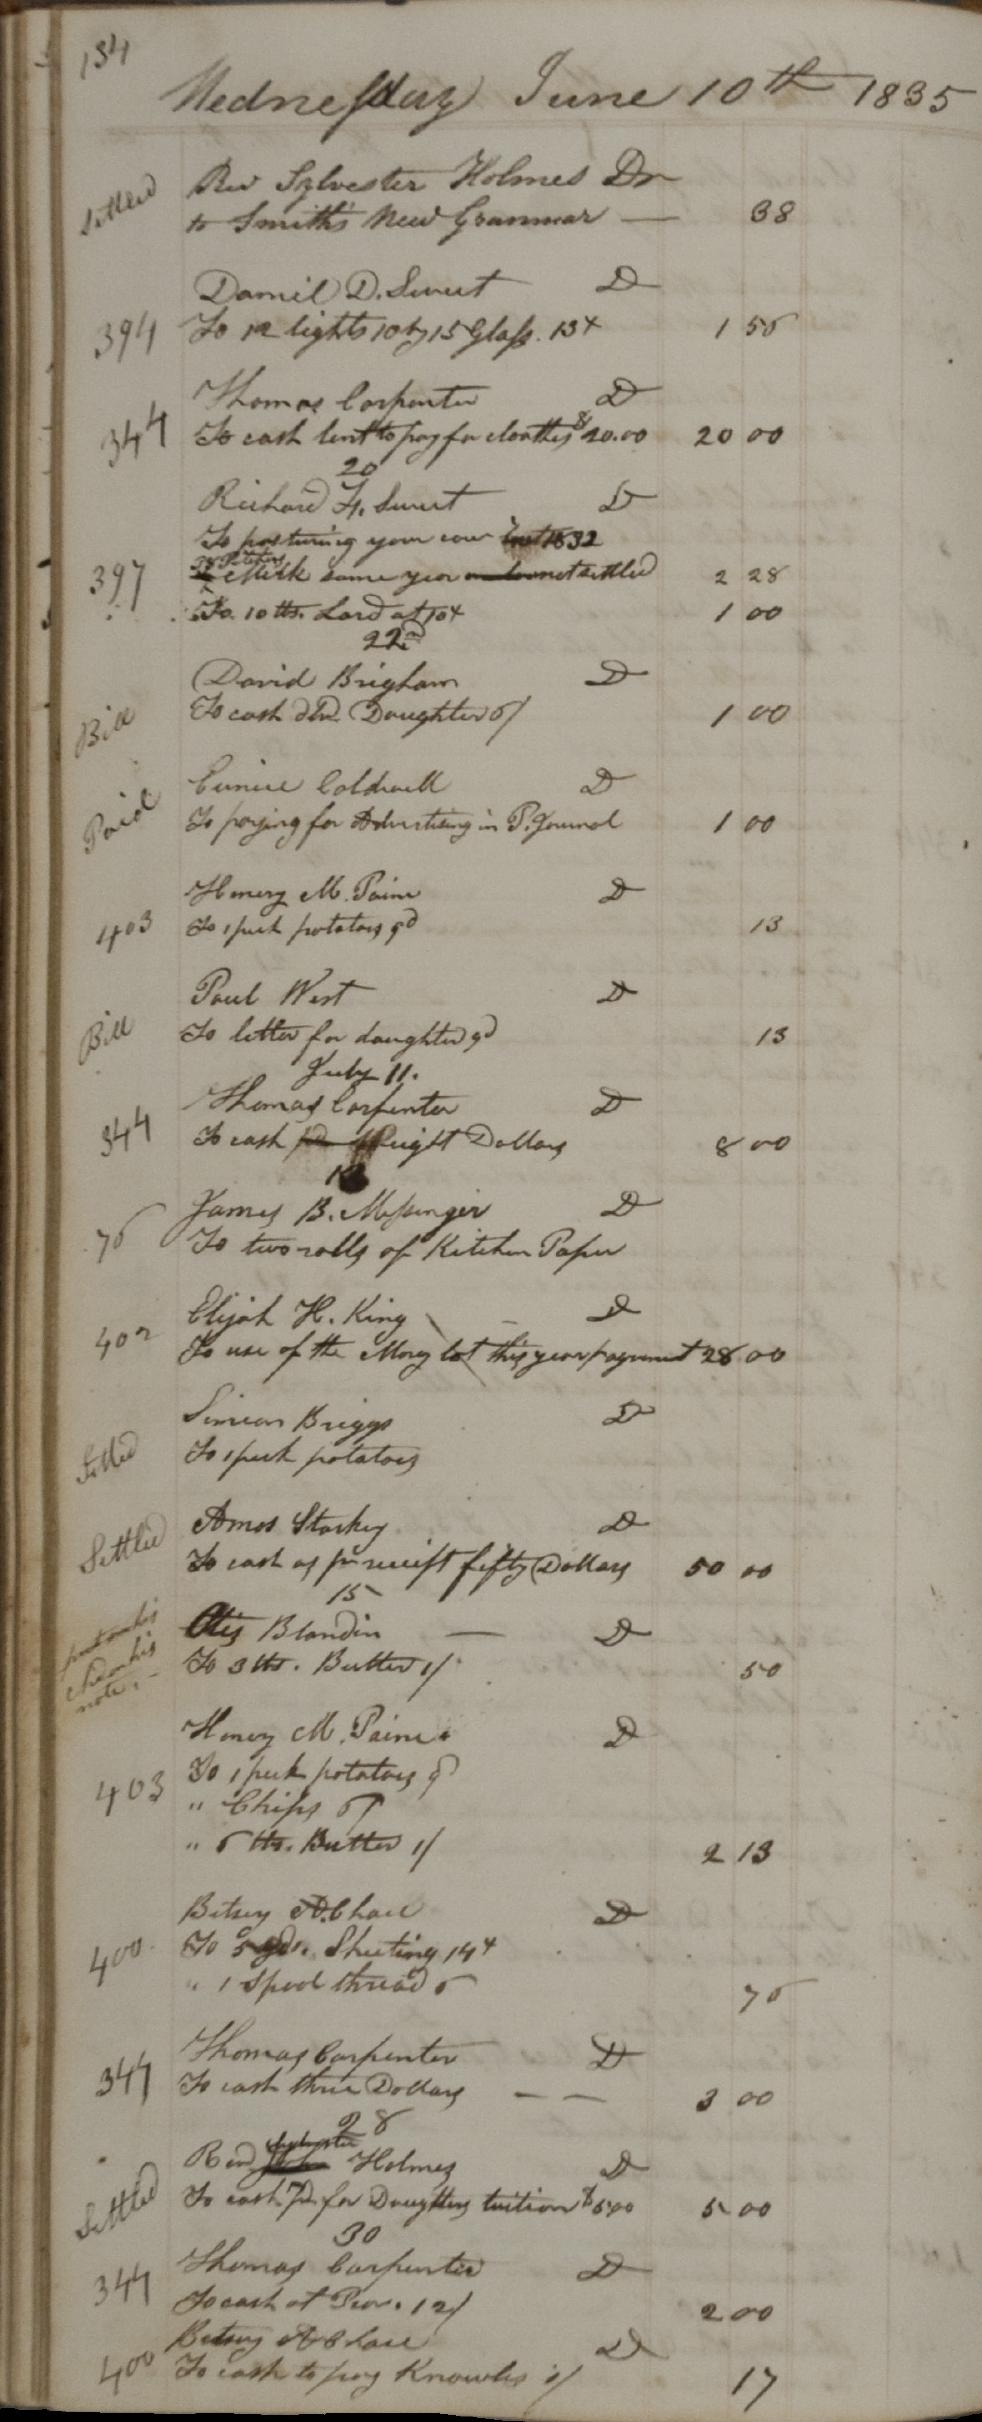 134
Wednesday June 10th 1835
Settled
Rev Sylvester Holmes Dr
to Smith's New Grammar — 38
Daniel D. Sweet D
394 To 12 lights 10 by 15 Glass. 13 1 56
Thomas Carpenter D
344 To cash lent to pay for cloathes $20.00 20 00
20
Richard F. Sweet D
To pasturing your cow 1832
397 Milk same year not settled 2 28
To 10 lbs. Lard at 10 1 00
22d
David Brigham D
Bill To cash dld Daughter 6/ 1 00
Eunice Caldwell D
Paid To paying for Advertising in P. Journal 1 00
Henry M. Paine D
403 To 1 peck potatoes 9d 13
Paul West D
Bill To letter for daughter 9d 13
July 11.
Thomas Carpenter D
344 To cash eight Dollars 8 00
James B. Messenger D
76 To two rolls of Kitchen Paper
Elijah H. King D
402 To use of the Morey lot this year pagreement 28 00
Simeon Briggs D
Settled To 1 peck potatoes
Amos Starkey D
Settled To cash as pr receipt fifty Dollars 50 00
15
Otis Blandin — D
note. To 3 lbs. Butter 1/ 50
Henry M. Paine D
403 To 1 peck potatoes 9d
" Chips 6/
" 6 lbs. Butter 1/ 2 13
Betsey A. Chace D
400 To 5 yds. Sheeting 14
" 1 Spool thread 6 76
Thomas Carpenter D
344 To cash three Dollars — — 3 00
28
Revd Sylvester Holmes D
Settled To cash pd for Daughters tuition $5.00 5 00
30
Thomas Carpenter D
344 To cash at Prov. 12/ 2 00
Betsey A Chace D
400 To cash to pay Knowles 1/ 17